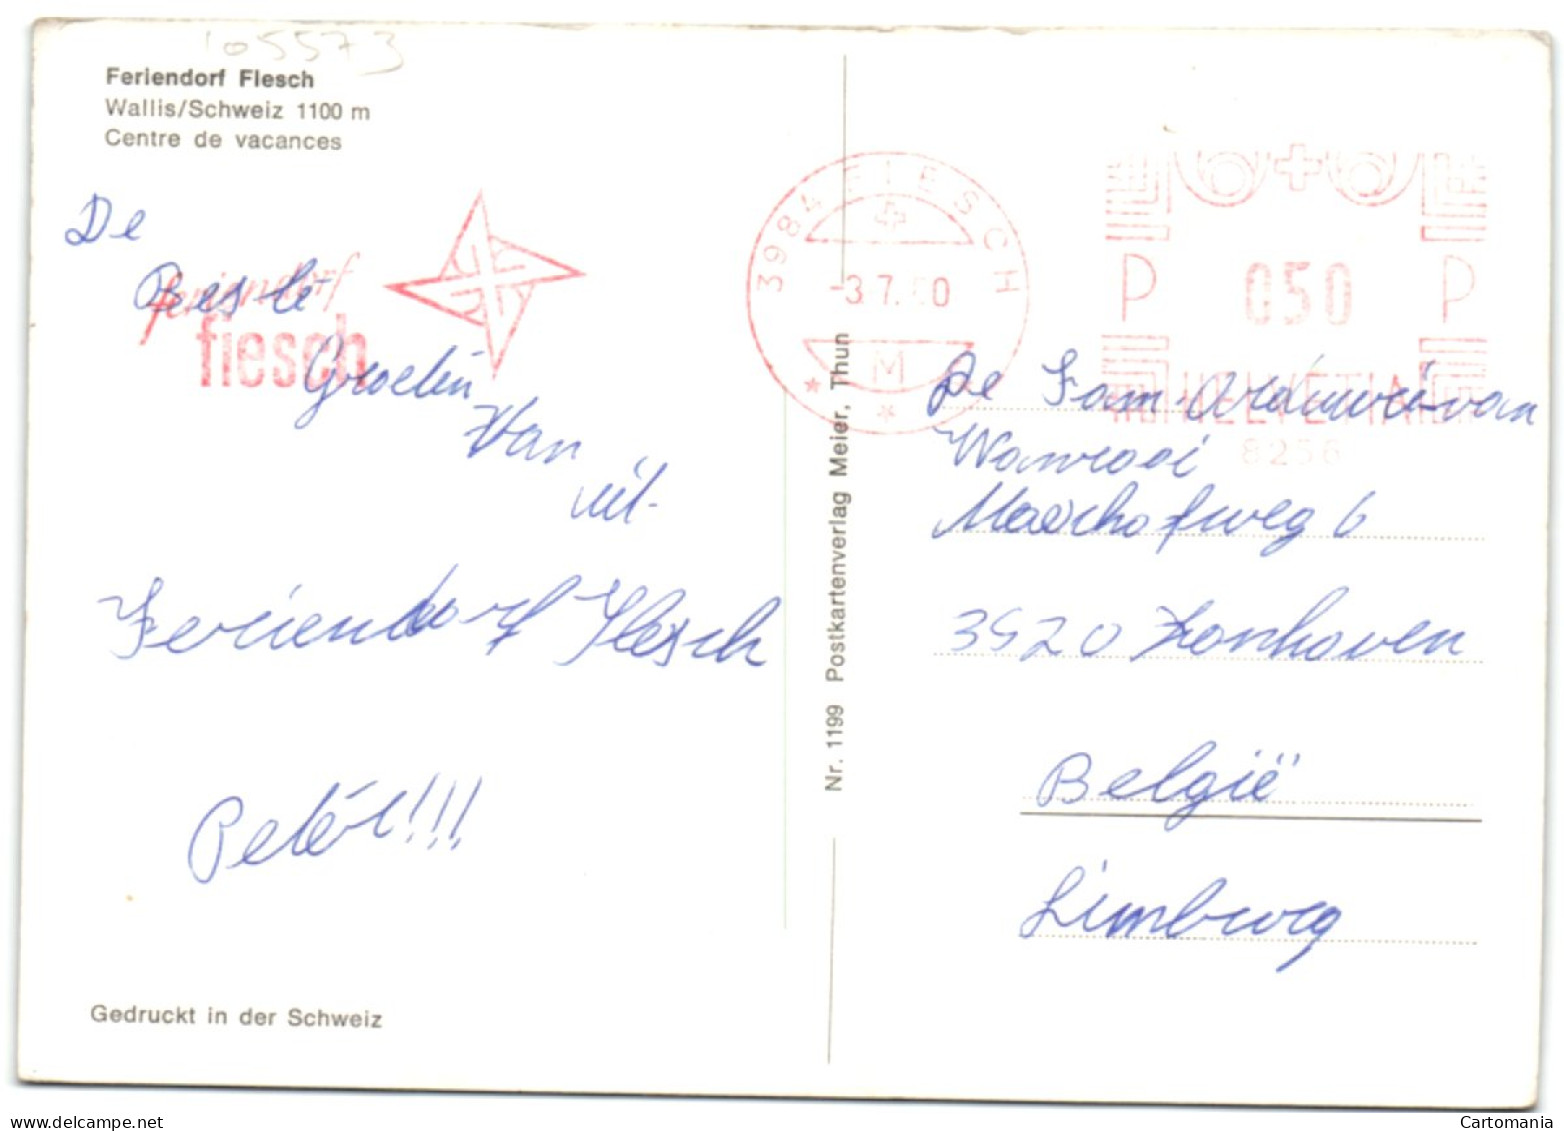 105573
Feriendorf Fiesch
Wallis/Schweiz 1100 m
Centre de vacances
De
Beste
Groeten
Van
uit
Feriendorf Flesch
Peter!!!
feriendorf
fiesch
Gedruckt in der Schweiz
Nr. 1199 Postkartenverlag Meier, Thun
3984 FIESCH
-3.7. 80
M
P 050 P
HELVETIA
8256
De Fam. van
Wanrooi
6
3520 Zonhoven
België
Limburg
www.delcampe.net
Cartomania